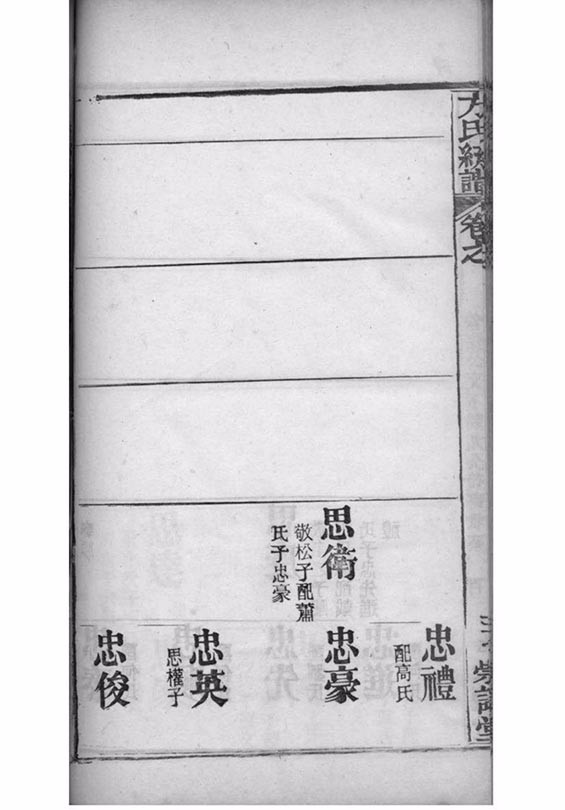 方氏統譜 卷之
思衛
敬松子配蕭
氏子忠豪
忠禮
配高氏
忠豪
忠英
思權子
忠俊